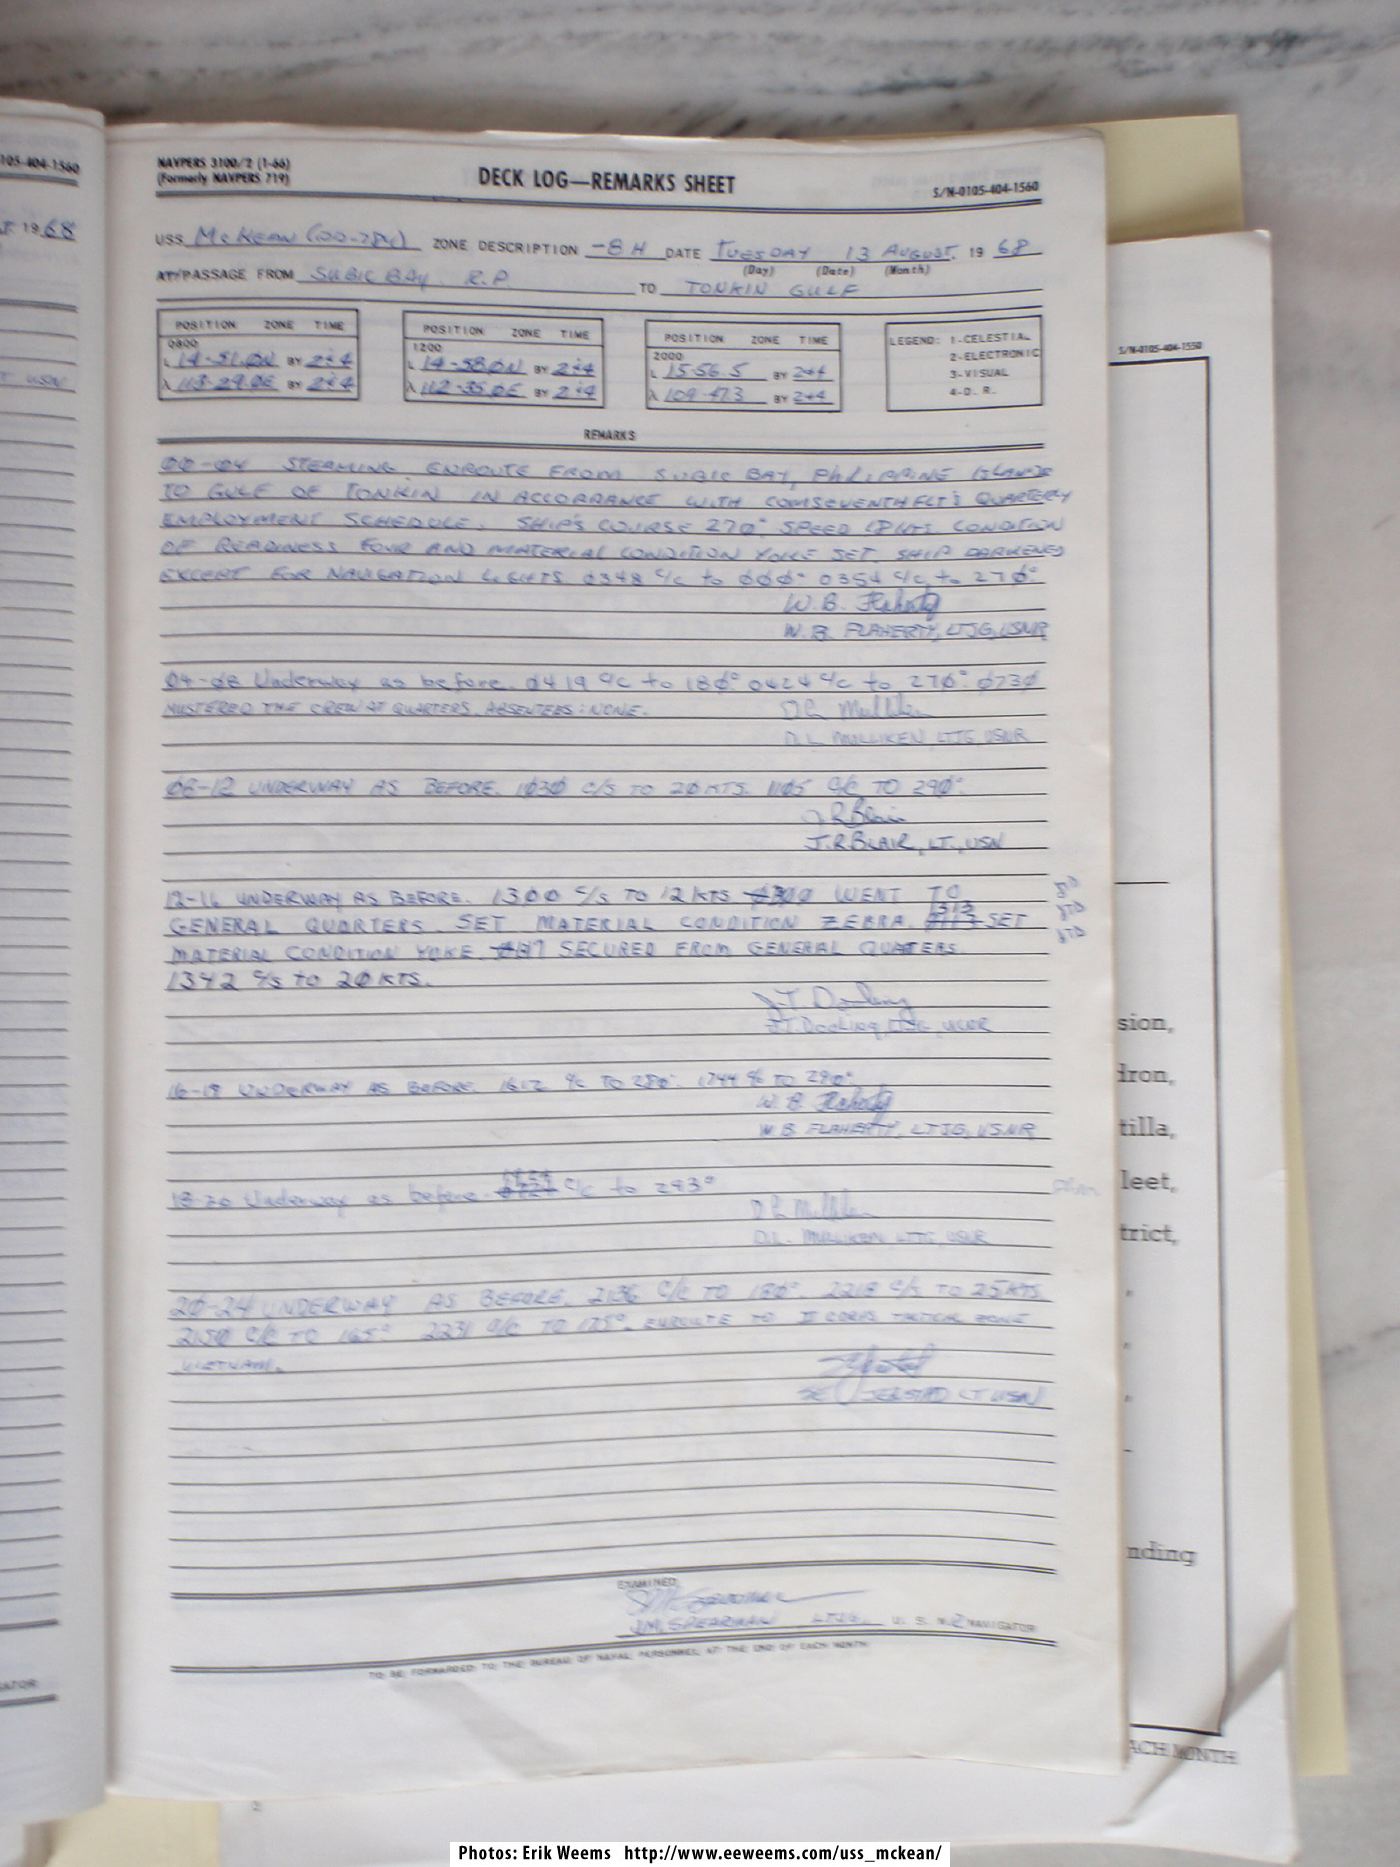 105-404-1560
19 68
T USN
NAVPERS 3100/2 (1-66)
(Formerly NAVPERS 719)
DECK LOG—REMARKS SHEET
S/N-0105-404-1560
USS McKEAN (DD-784) ZONE DESCRIPTION -8H DATE TUESDAY 13 AUGUST 19 68
(Day) (Date) (Month)
AT/PASSAGE FROM SUBIC BAY, R.P. TO TONKIN GULF
POSITION ZONE TIME
0800
L 14-51.0N BY 2+4
λ 113-29.0E BY 2+4
POSITION ZONE TIME
1200
L 14-58.0N BY 2+4
λ 112-35.0E BY 2+4
POSITION ZONE TIME
2000
L 15-56.5 BY 2+4
λ 109-47.3 BY 2+4
LEGEND: 1-CELESTIAL
2-ELECTRONIC
3-VISUAL
4-D. R.
REMARKS
00-04 STEAMING ENROUTE FROM SUBIC BAY, PHILIPPINE ISLANDS
TO GULF OF TONKIN IN ACCORDANCE WITH COMSEVENTHFLT'S QUARTERLY
EMPLOYMENT SCHEDULE. SHIP'S COURSE 270° SPEED CONDITION
OF READINESS FOUR AND MATERIAL CONDITION YOKE SET. SHIP DARKENED
EXCEPT FOR NAVIGATION LIGHTS. 0348 C/C to 000° 0354 C/C to 270°
W.B. Flaherty
W.B. FLAHERTY, LTJG, USNR
04-08 Underway as before. 0419 C/C to 180° 0424 C/C to 270° 0730
MUSTERED THE CREW AT QUARTERS, ABSENTEES: NONE.
D L Mulliken
D.L. MULLIKEN LTJG USNR
08-12 UNDERWAY AS BEFORE. 1030 C/S TO 20 KTS. 1105 C/C TO 290°.
J R Blair
J.R. BLAIR, LT., USN
12-16 UNDERWAY AS BEFORE. 1300 C/S TO 12 KTS WENT TO
GENERAL QUARTERS. SET MATERIAL CONDITION ZEBRA. 1313 SET
MATERIAL CONDITION YOKE. SECURED FROM GENERAL QUARTERS.
1342 C/S to 20 KTS.
J.T. Dooling
J.T. Dooling, LTJG, USNR
16-18 UNDERWAY AS BEFORE. 1612 C/C TO 280°. 1744 C/C TO 290°.
W.B. Flaherty
W.B. FLAHERTY, LTJG, USNR
18-20 Underway as before. C/C to 293°
D L Mulliken
D.L. MULLIKEN LTJG, USNR
20-24 UNDERWAY AS BEFORE. 2136 C/C TO 180°. 2218 C/S TO 25 KTS.
2150 C/C TO 165° 2231 C/C TO 175°. ENROUTE TO II CORPS TACTICAL ZONE
VIETNAM.
JERSTAD LT USN
EXAMINED
J.M. SPEARMAN LTJG. U. S. N. R NAVIGATOR
TO BE FORWARDED TO THE BUREAU OF NAVAL PERSONNEL AT THE END OF EACH MONTH
S/N-0105-404-1550
sion,
dron,
tilla,
leet,
trict,
nding
ACH MONTH
Photos: Erik Weems http://www.eeweems.com/uss_mckean/